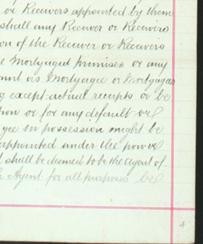 or Receivers appointed by them
shall any Receiver or Receivers
ion of the Receiver or Receivers
Mortgaged premises or any
Mortgagee or Mortgagees
except actual receipts or be
or for any default or
in possession might be
appointed under the power
shall be deemed to be the agent of
Agent for all purposes be